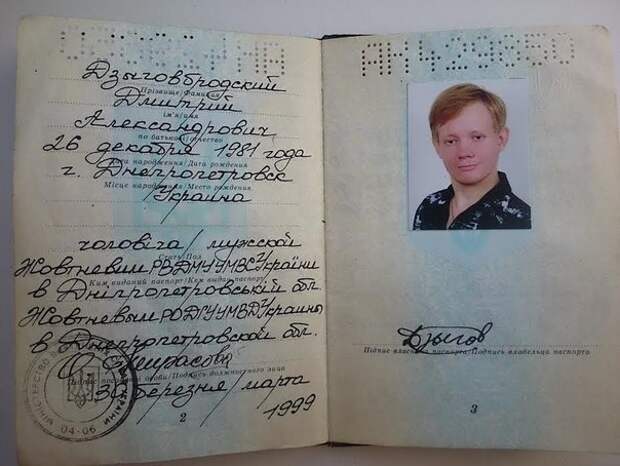 Дзыговбродский
Прізвище/Фамилия
Дмитрий
ім'я/имя
Александрович
по батькові/отчество
26 декабря 1981 года
Дата народження/Дата рождения
г. Днепропетровск
Місце народження/Место рождения
/Украина
чоловіча/мужской
Стать/Пол
Жовтневим РВДМУУМВСУкраїни
Ким виданий паспорт/Кем выдан паспорт
в Дніпропетровській обл.
Жовтневым РОДГУУМВДУкраины
в Днепропетровской обл.
Підпис посадової особи/Подпись должностного лица
30 березня/марта
1999
МІНІСТЕРСТВО
УКРАЇНИ
04-06
2
Дзыгов
Підпис власника паспорта/Подпись владельца паспорта
3